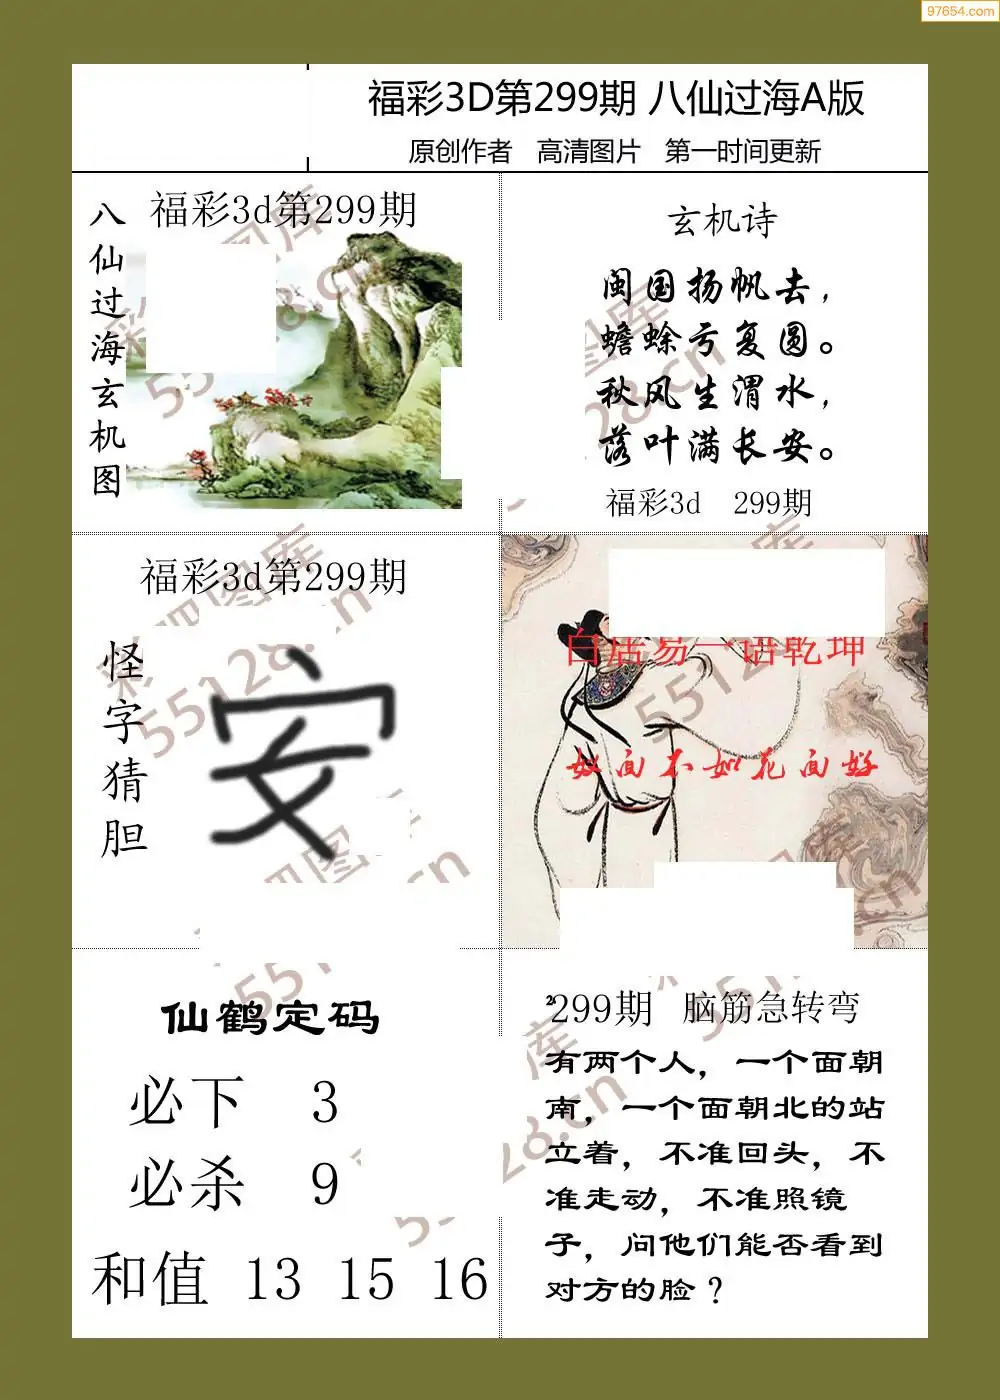 97654.com
福彩3D第299期 八仙过海A版
原创作者 高清图片 第一时间更新
福彩3d第299期
八仙过海玄机图
玄机诗
闽国扬帆去，
蟾蜍亏复圆。
秋风生渭水，
落叶满长安。
福彩3d 299期
福彩3d第299期
怪字猜胆
安
白居易一语乾坤
妝面不如花面好
仙鹤定码
必下 3
必杀 9
和值 13 15 16
299期 脑筋急转弯
有两个人，一个面朝
南，一个面朝北的站
立着，不准回头，不
准走动，不准照镜
子，问他们能否看到
对方的脸？